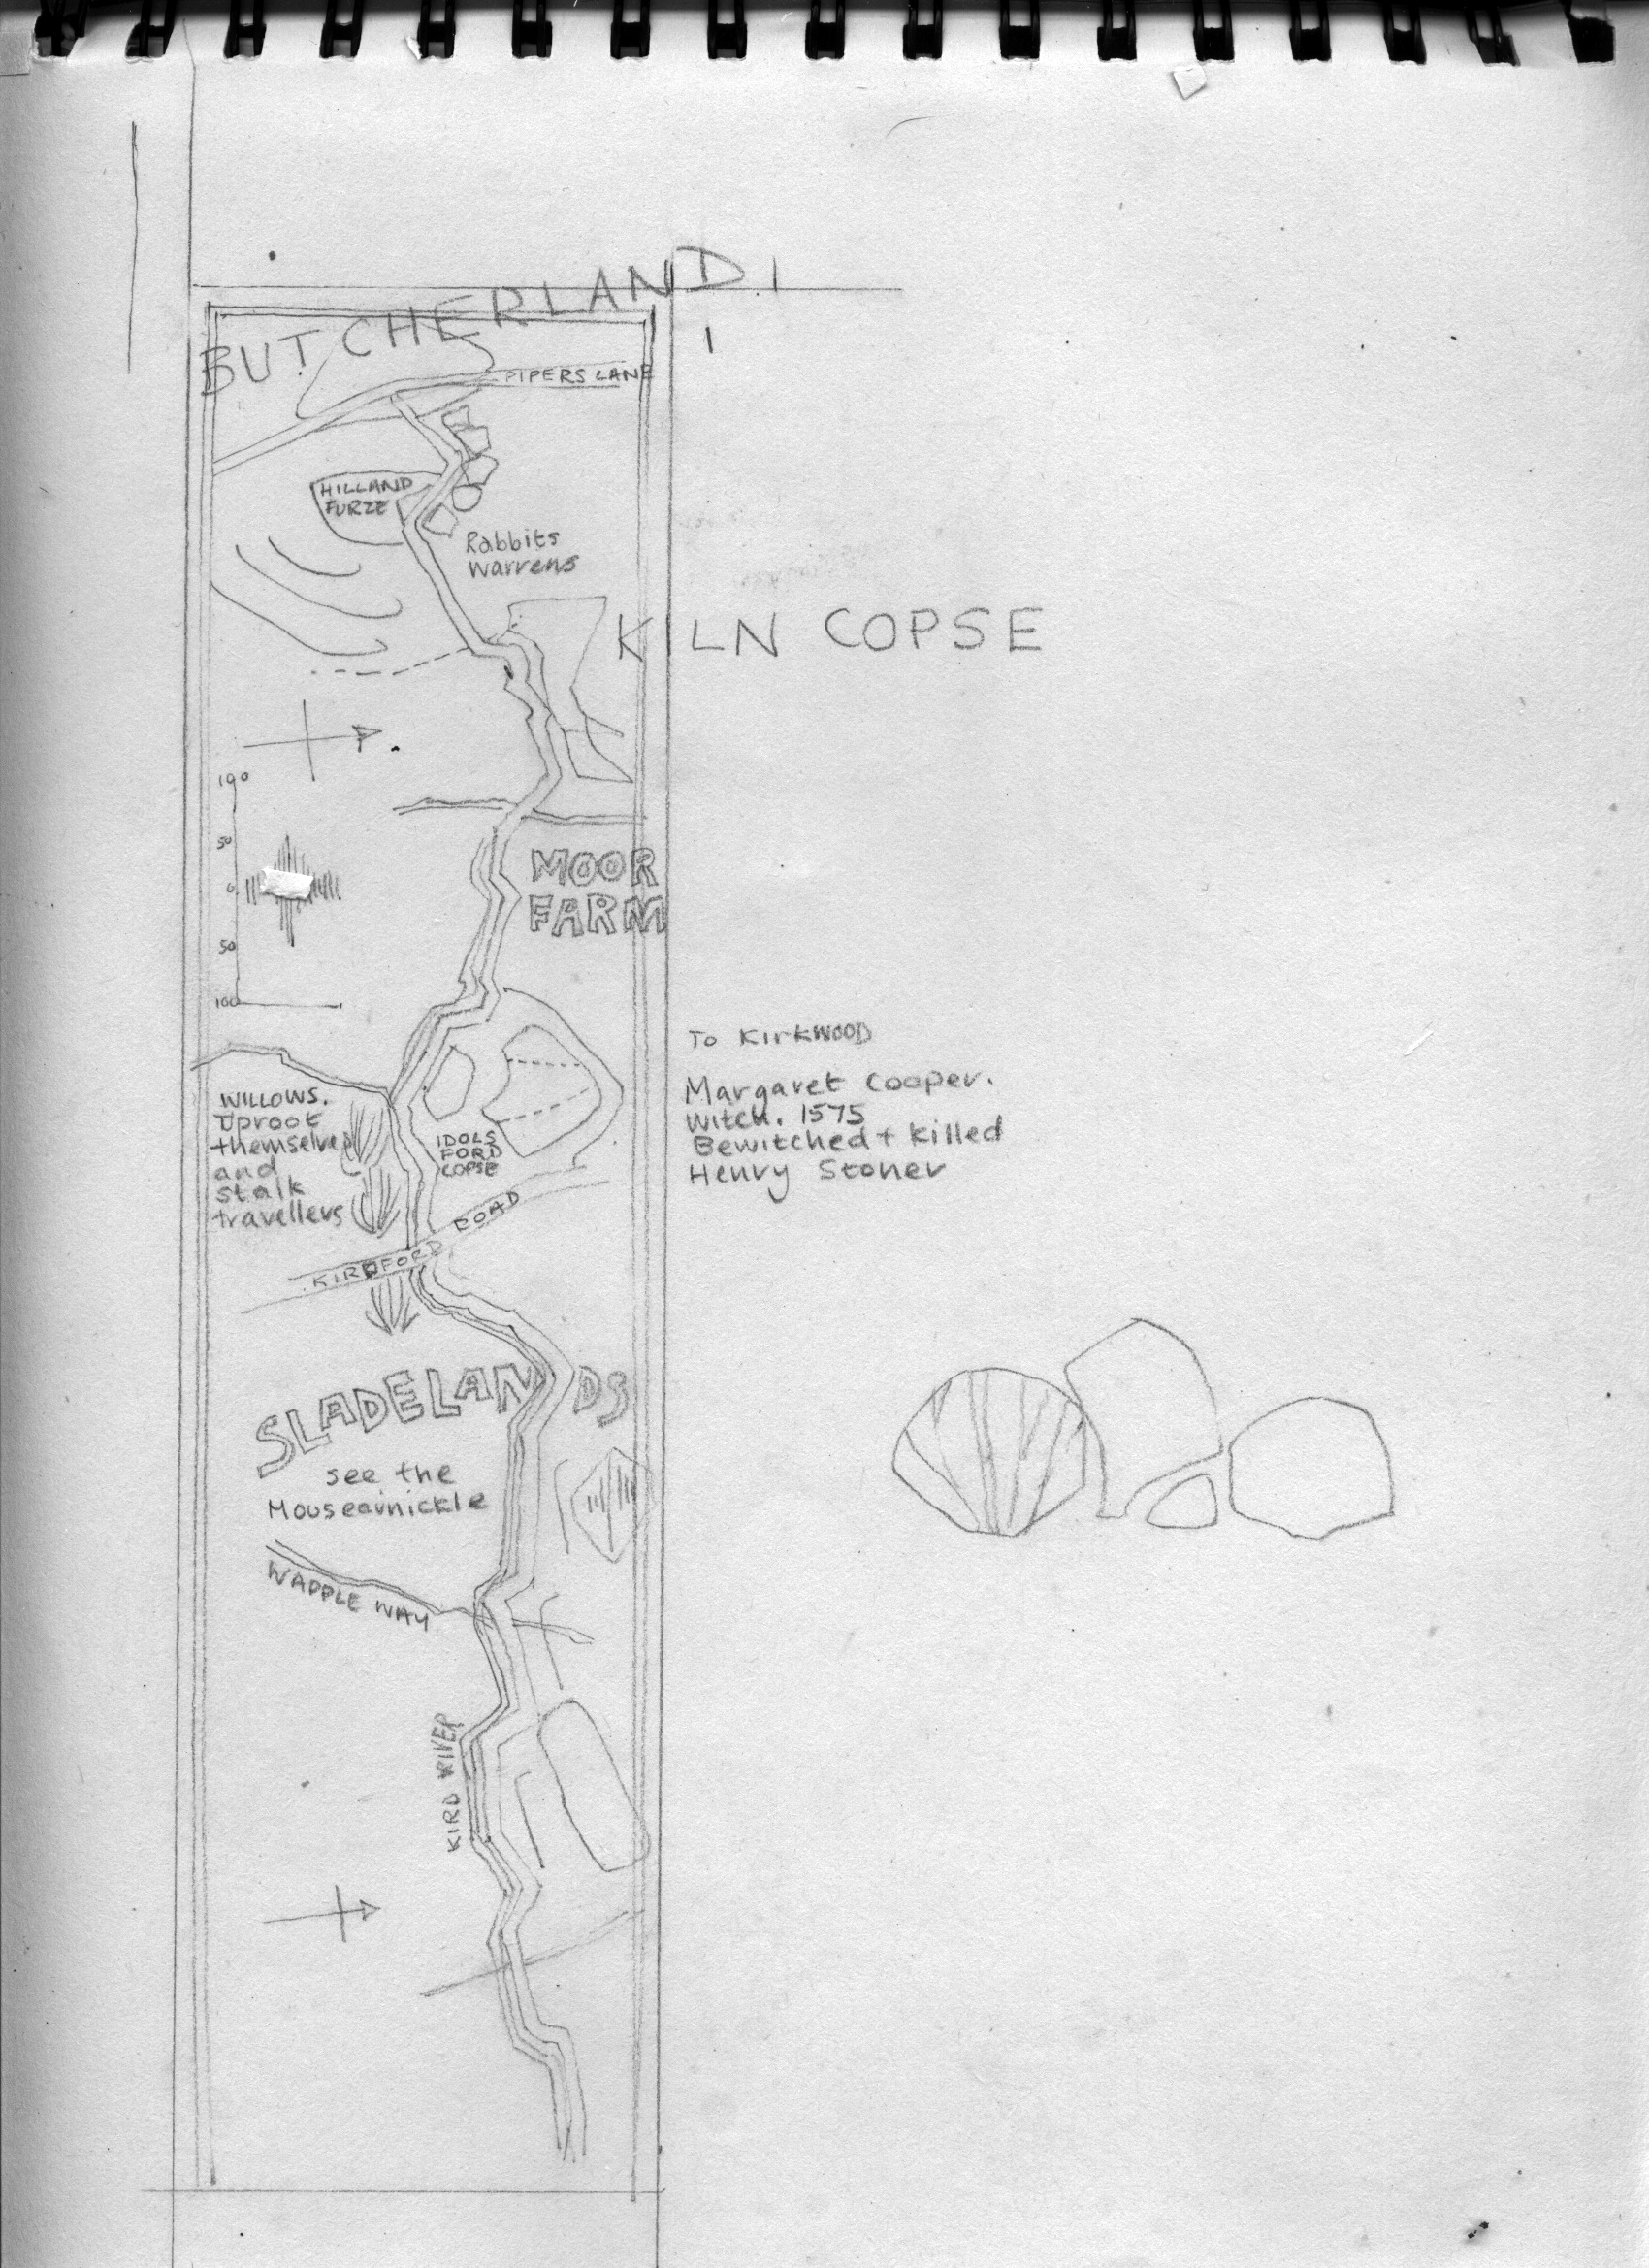 BUTCHERLAND
PIPERS LANE
HILLAND
FURZE
Rabbits
Warrens
KILN COPSE
100
50
0
50
100
MOOR
FARM
To Kirkwood
Margaret Cooper.
Witch. 1575
Bewitched + Killed
Henry Stoner
WILLOWS.
Uproot
themselves
and
stalk
travellers
IDOLS
FORD
COPSE
KIRDFORD ROAD
SLADELANDS
see the
Mousearnickle
WAPPLE WAY
KIRD RIVER